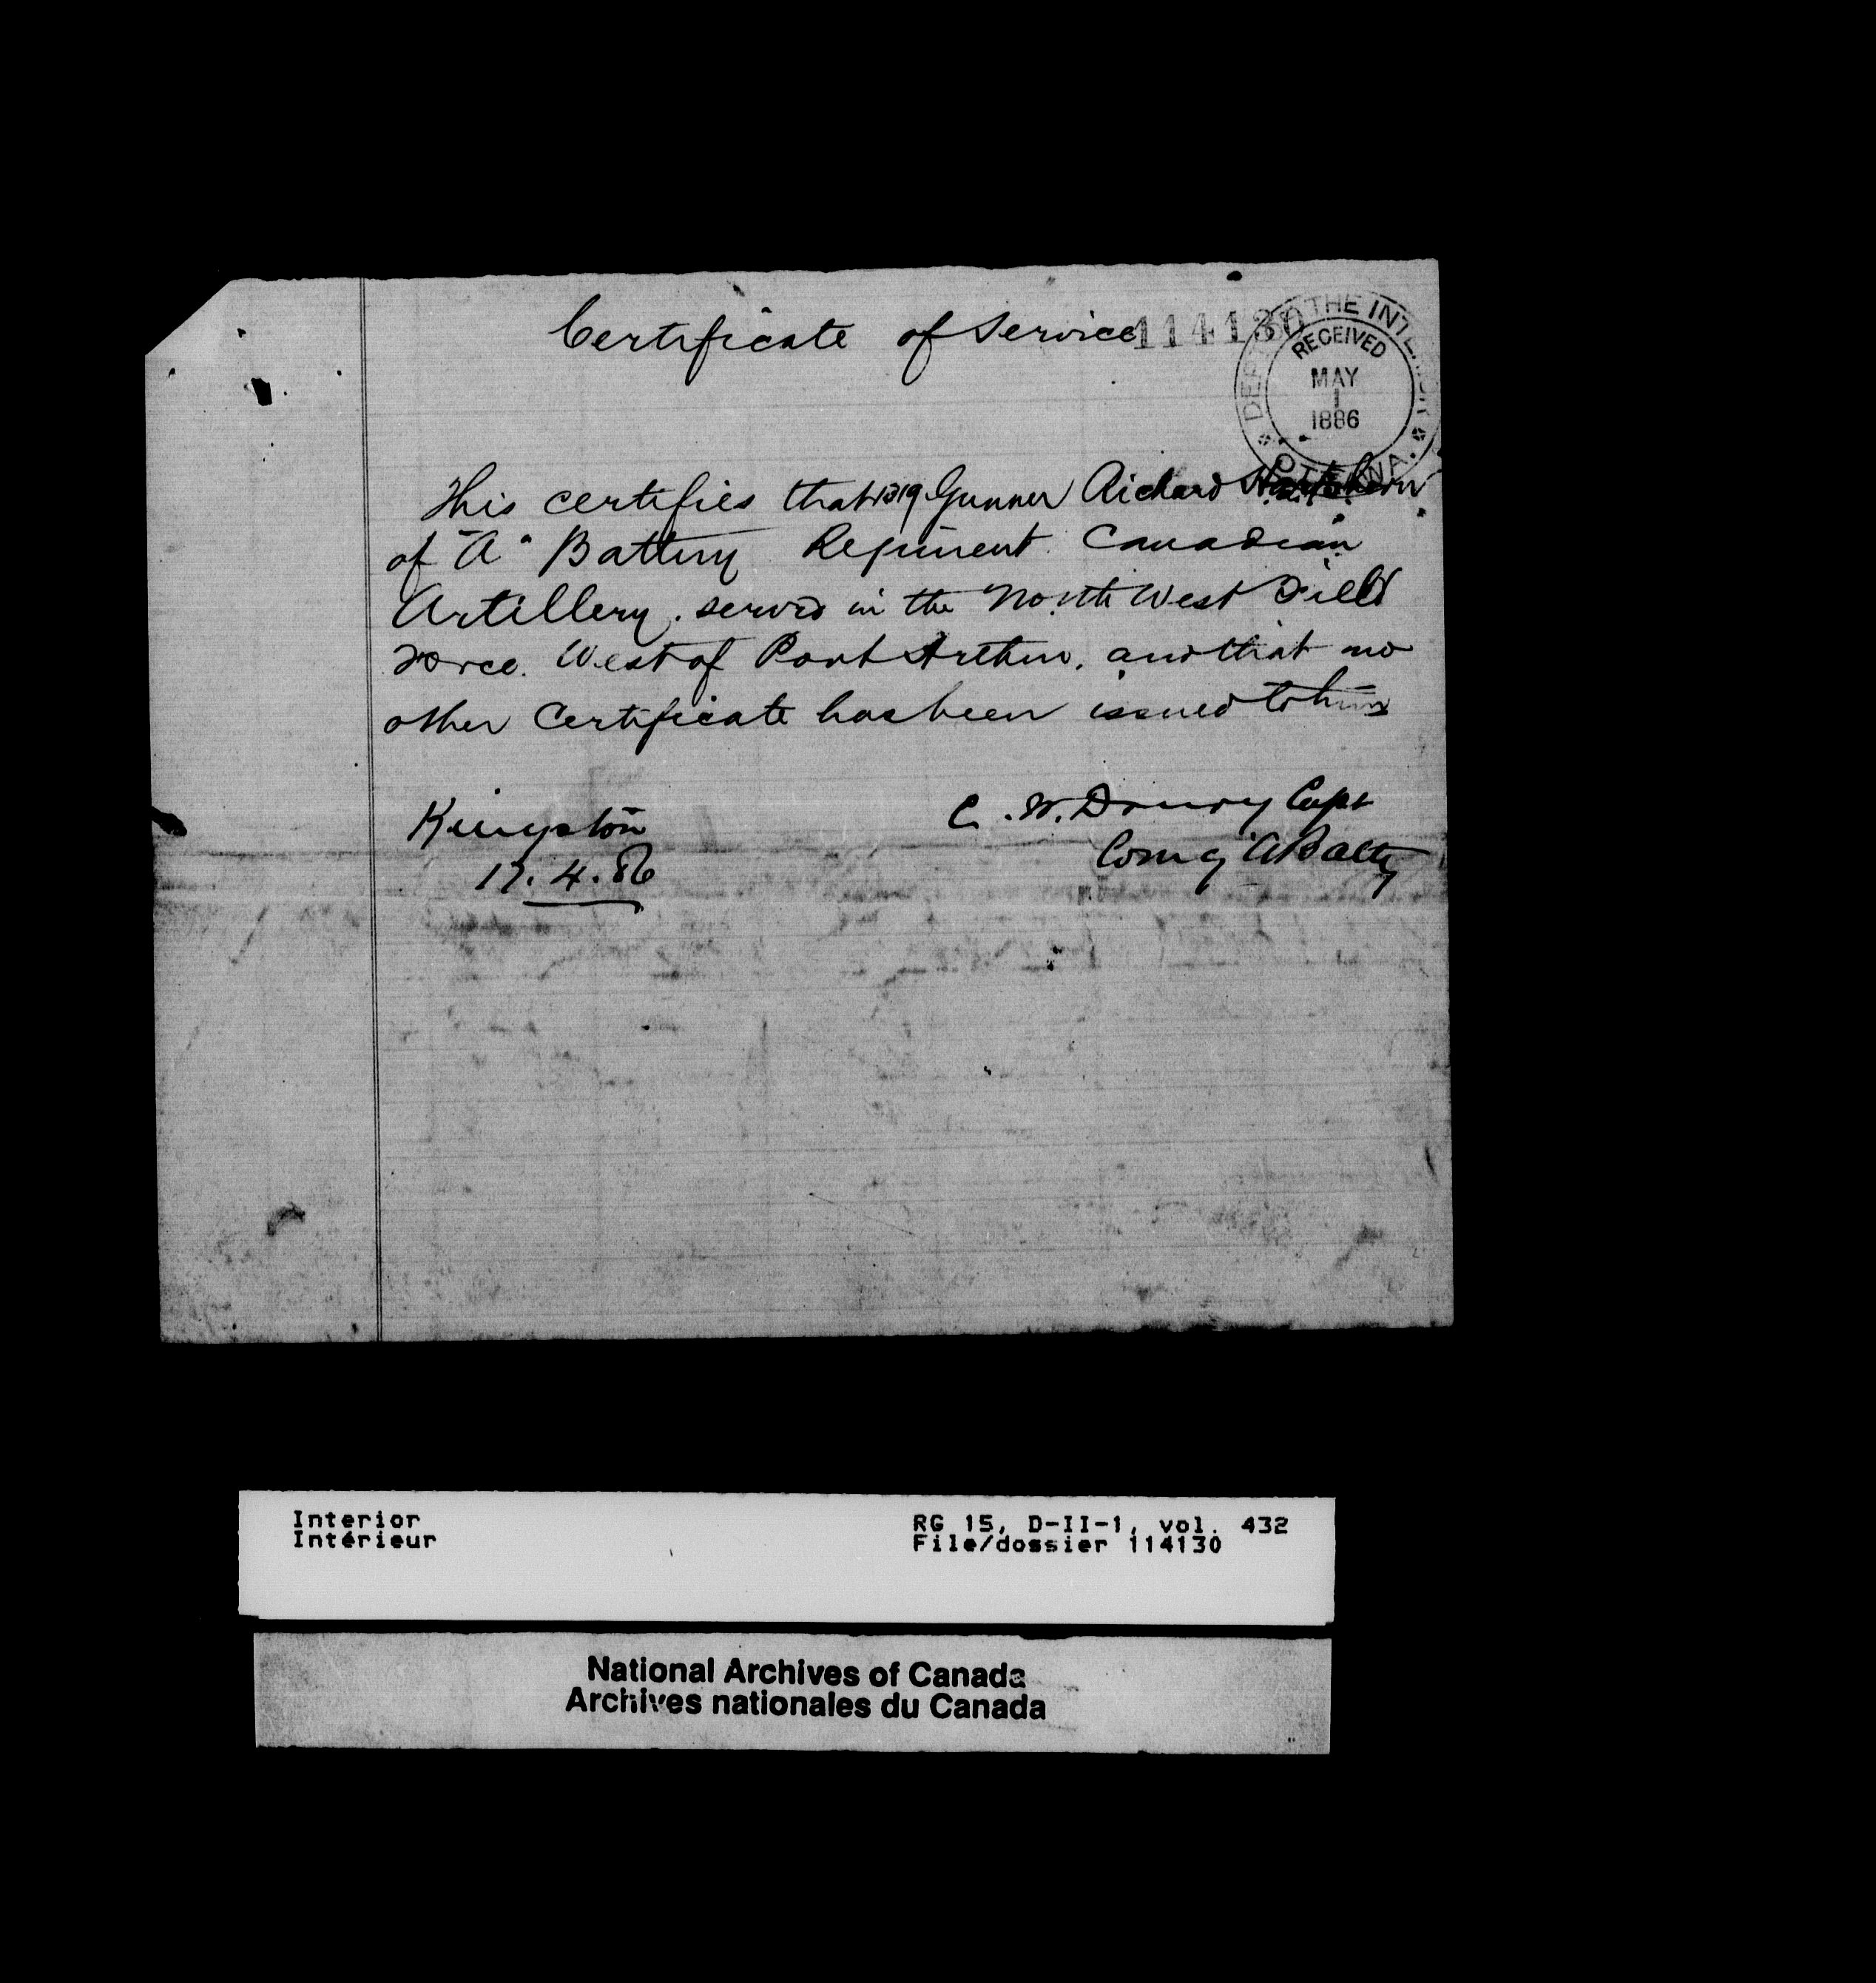 Certificate of Service
114130
DEPT. OF THE INTERIOR
RECEIVED
MAY
1
1886
OTTAWA.
This certifies that 1319 Gunner Richard
of "A" Battery Regiment Canadian
Artillery. served in the North West Field
Force. West of Port Arthur. and that no
other Certificate has been issued to him
Kingston
17.4.86
C. W. Drury Capt
Comg A Batty
Interior
Intérieur
RG 15, D-II-1, vol. 432
File/dossier 114130
National Archives of Canada
Archives nationales du Canada